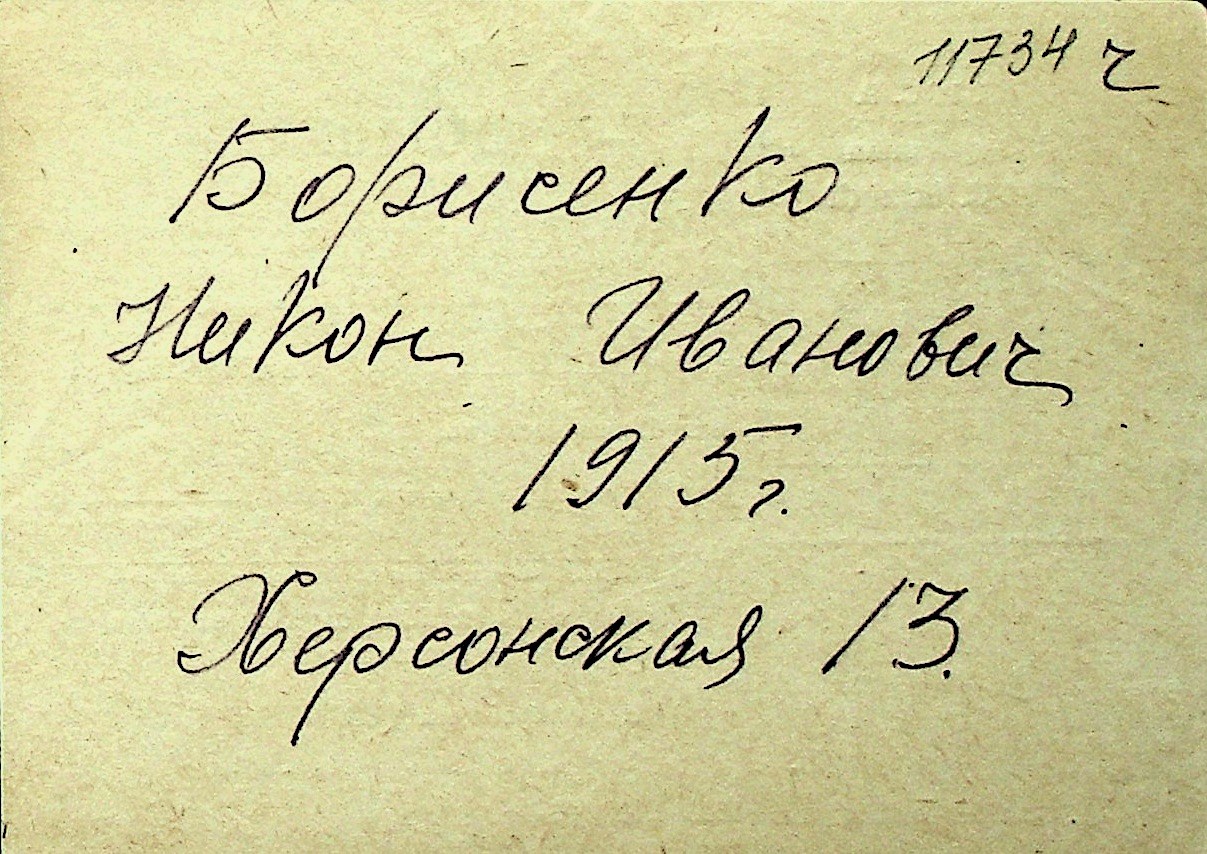 11734 ч
Борисенко
Никон Иванович
1915г.
Херсонская 13.